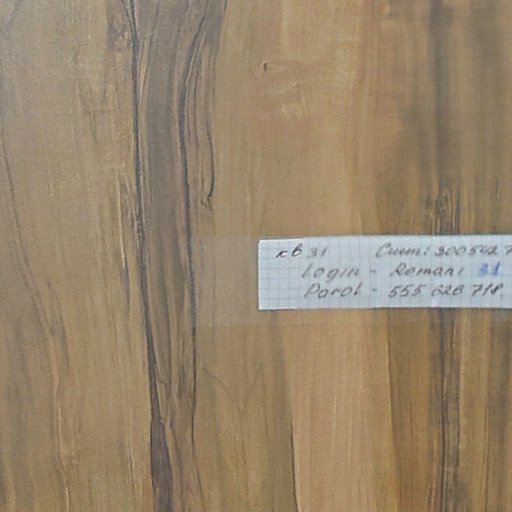 кв 31 Счет: 300542 7
Login - Romani 31
Parol - 555 628 718